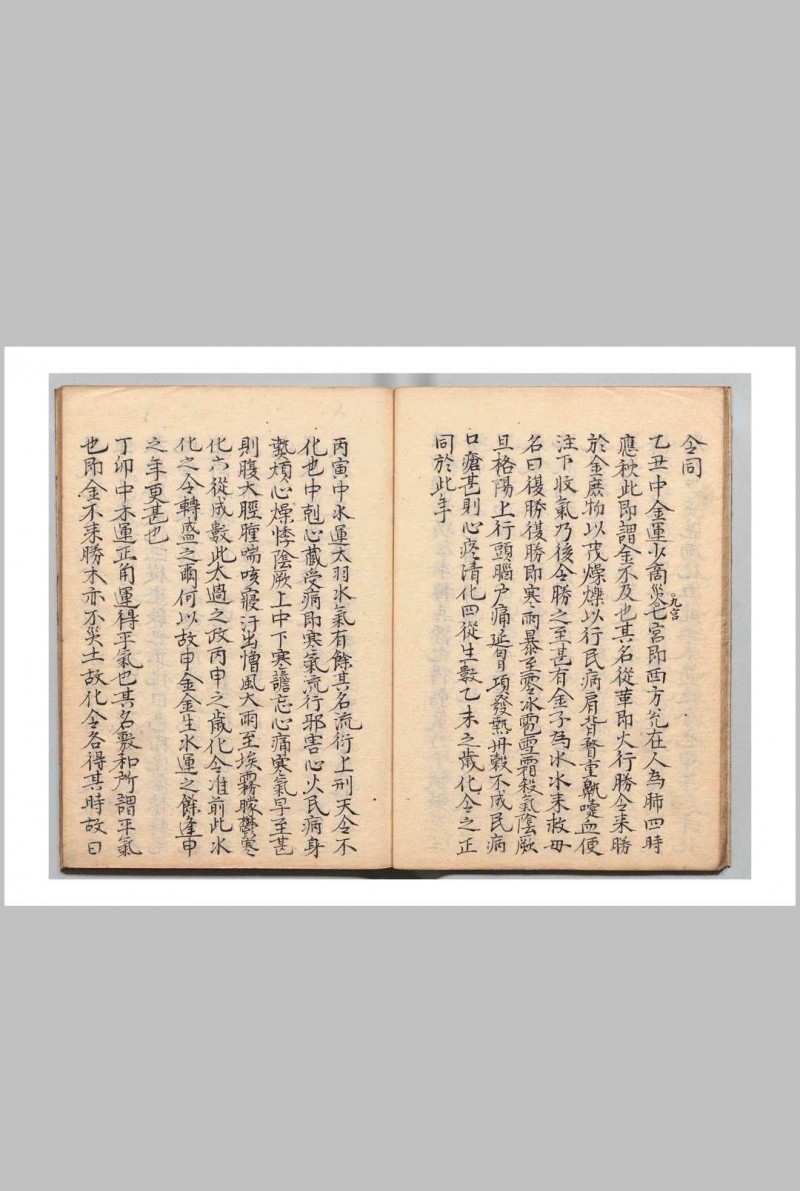 令同
乙丑中金運少商災七宮即西方兌在人為肺四時
九宮
應秋此即謂金不及也其名從革即火行勝令来勝
於金庶物以茂燥爍以行民病肩背瞀重鼽嚏血便
注下收氣乃後令勝之至甚有金子為水水来救母
名曰復勝復勝即寒雨暴至零冰雹雪霜殺氣陰厥
且格陽上行頭腦户痛延 項發熱丹穀不成民病
口瘡甚則心疼清化四從生數乙未之歲化令之正
同於此年
丙寅中水運太羽水氣有餘其名流衍上刑天令不
化也中剋心藏受病即寒氣流行邪害心火民病身
熱煩心燥悸陰厥上中下寒譫忘心痛寒氣早至甚
則腹大脛腫喘咳寢汗出憎風大雨至埃霧朦鬱寒
化六從成數此太過之政丙申之歲化令准前此水
化之令轉盛之爾何以故申金金生水運之餘逢申
之年更甚也
丁卯中木運正角運得平氣也其名敷和所謂平氣
也即金不来勝木亦不災土故化令各得其時故曰